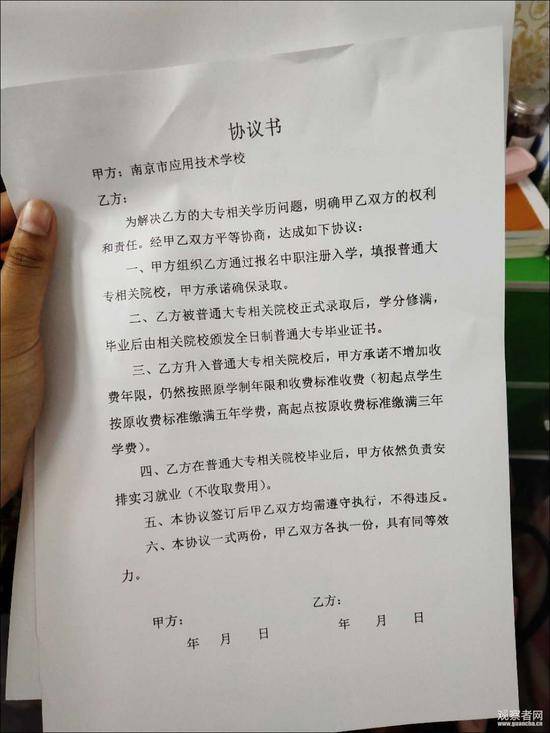 协议书
甲方：南京市应用技术学校
乙方：
为解决乙方的大专相关学历问题，明确甲乙双方的权利
和责任。经甲乙双方平等协商，达成如下协议：
一、甲方组织乙方通过报名中职注册入学，填报普通大
专相关院校，甲方承诺确保录取。
二、乙方被普通大专相关院校正式录取后，学分修满，
毕业后由相关院校颁发全日制普通大专毕业证书。
三、乙方升入普通大专相关院校后，甲方承诺不增加收
费年限，仍然按照原学制年限和收费标准收费（初起点学生
按原收费标准缴满五年学费，高起点按原收费标准缴满三年
学费）。
四、乙方在普通大专相关院校毕业后，甲方依然负责安
排实习就业（不收取费用）。
五、本协议签订后甲乙双方均需遵守执行，不得违反。
六、本协议一式两份，甲乙双方各执一份，具有同等效
力。
甲方： 乙方：
年 月 日 年 月 日
观察者网
www.guancha.cn